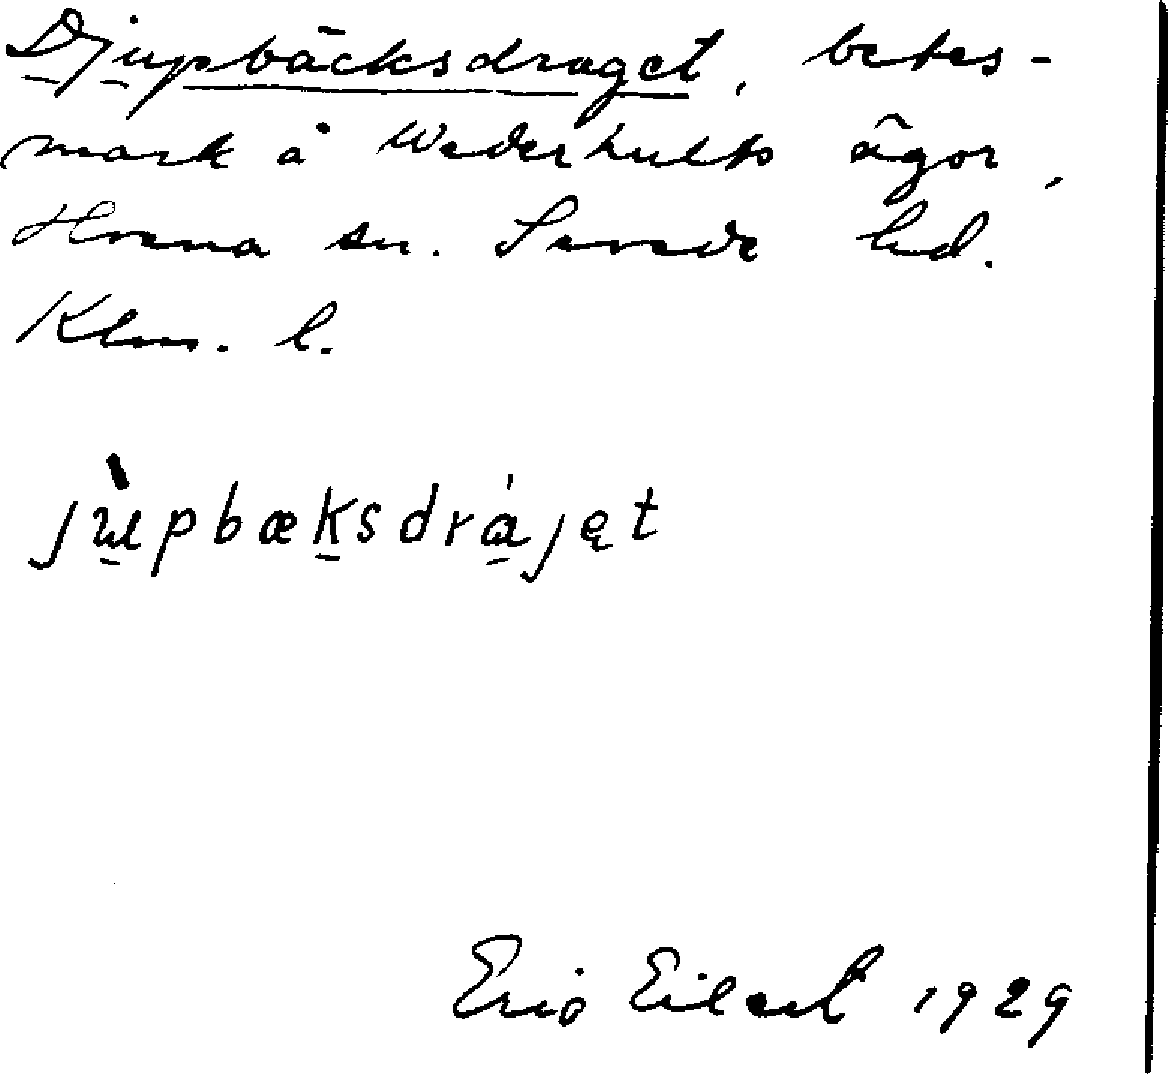 Djupbäcksdraget, betes-
mark å Wederhults ägor,
Hvena sn. Sevede hd.
Klm. l.
jùpbæksdrájęt
Eric Eilert 1929